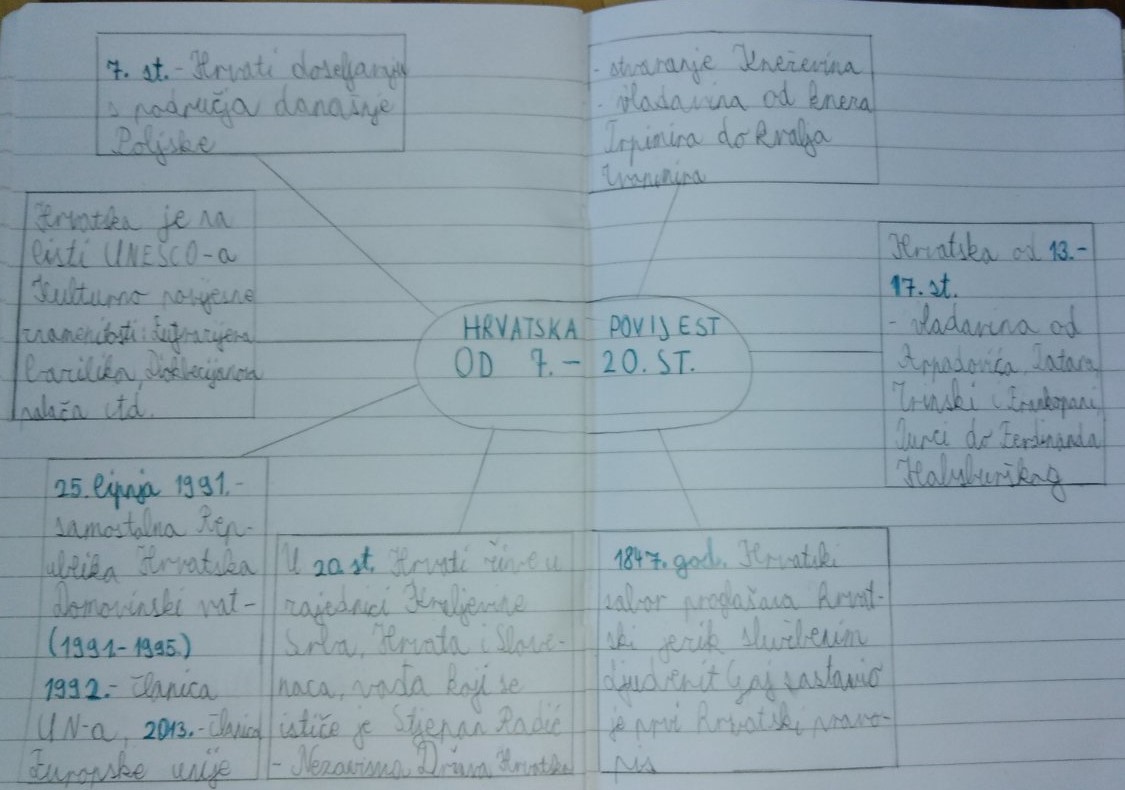 7. st. - Hrvati doseljavaju
s područja današnje
Poljske
- stvaranje Kneževina
- vladavina od kneza
Trpimira do kralja
Zvonimira
Hrvatska je na
listi UNESCO-a
Kulturno povijesne
znamenitosti: Eufrazijeva
bazilika, Dioklecijanova
palača itd.
HRVATSKA POVIJEST
OD 7. - 20. ST.
Hrvatska od 13.-
17. st.
- vladavina od
Arpadovića, Tatara,
Zrinski i Frankopani,
Turci do Ferdinanda
Habsburškog
25. lipnja 1991. -
samostalna Rep-
ublika Hrvatska
Domovinski rat -
(1991-1995.)
1992. - članica
UN-a, 2013. - članica
Europske unije
U 20. st. Hrvati žive u
zajednici Kraljevine
Srba, Hrvata i Slove-
naca, vođa koji se
ističe je Stjepan Radić
- Nezavisna Država Hrvatska
1847. god. Hrvatski
sabor proglašava hrvat-
ski jezik službenim
Ljudevit Gaj sastavio
je prvi hrvatski pravo-
pis